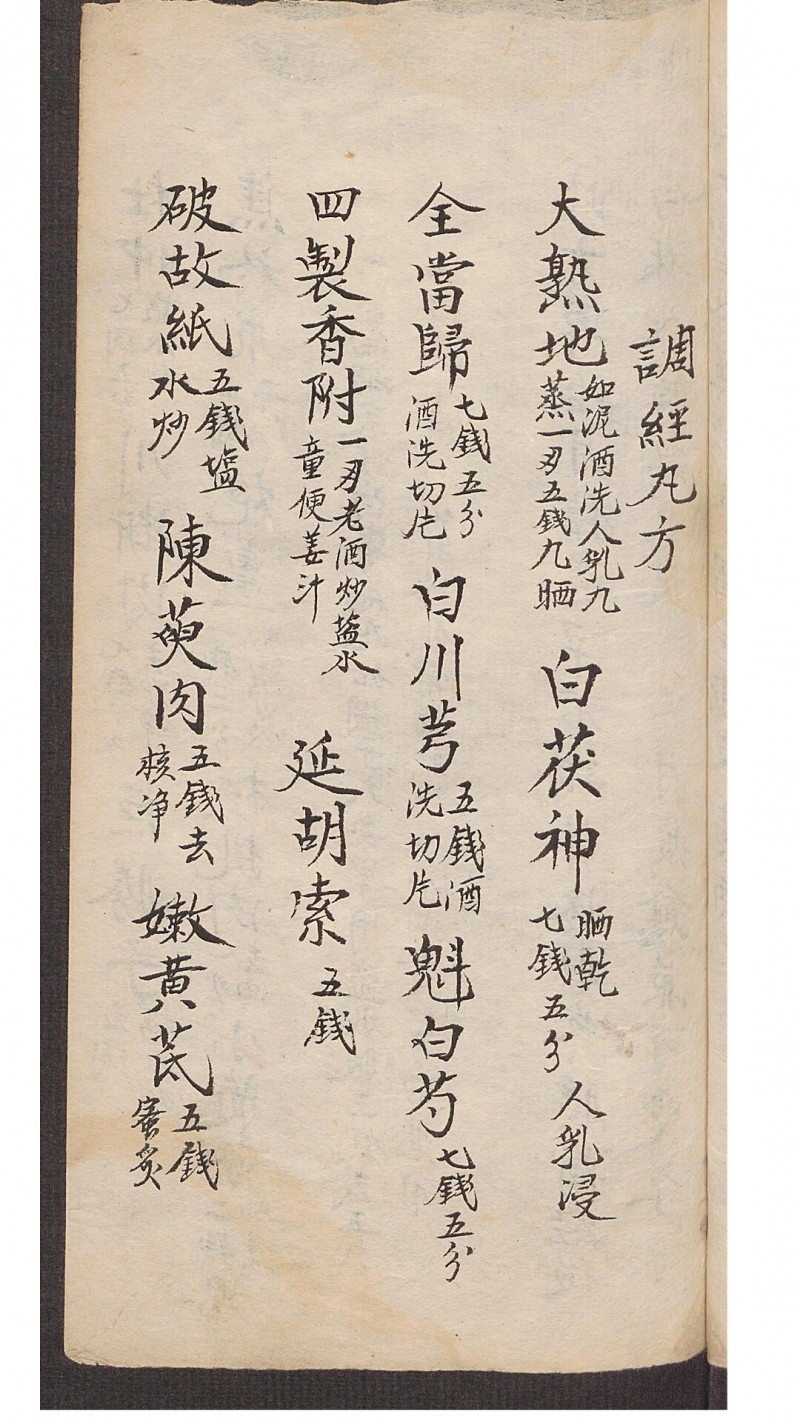 調經丸方
大熟地如泥酒洗人乳九蒸一刄五錢九晒 白茯神晒乾七錢五分人乳浸
全當歸七錢五分酒洗切片 白川芎五錢酒洗切片 魁白芍七錢五分
四製香附一刄老酒炒塩水童便姜汁 延胡索五錢
破故紙五錢塩水炒 陳萸肉五錢去核净 嫩黄芪五錢蜜炙